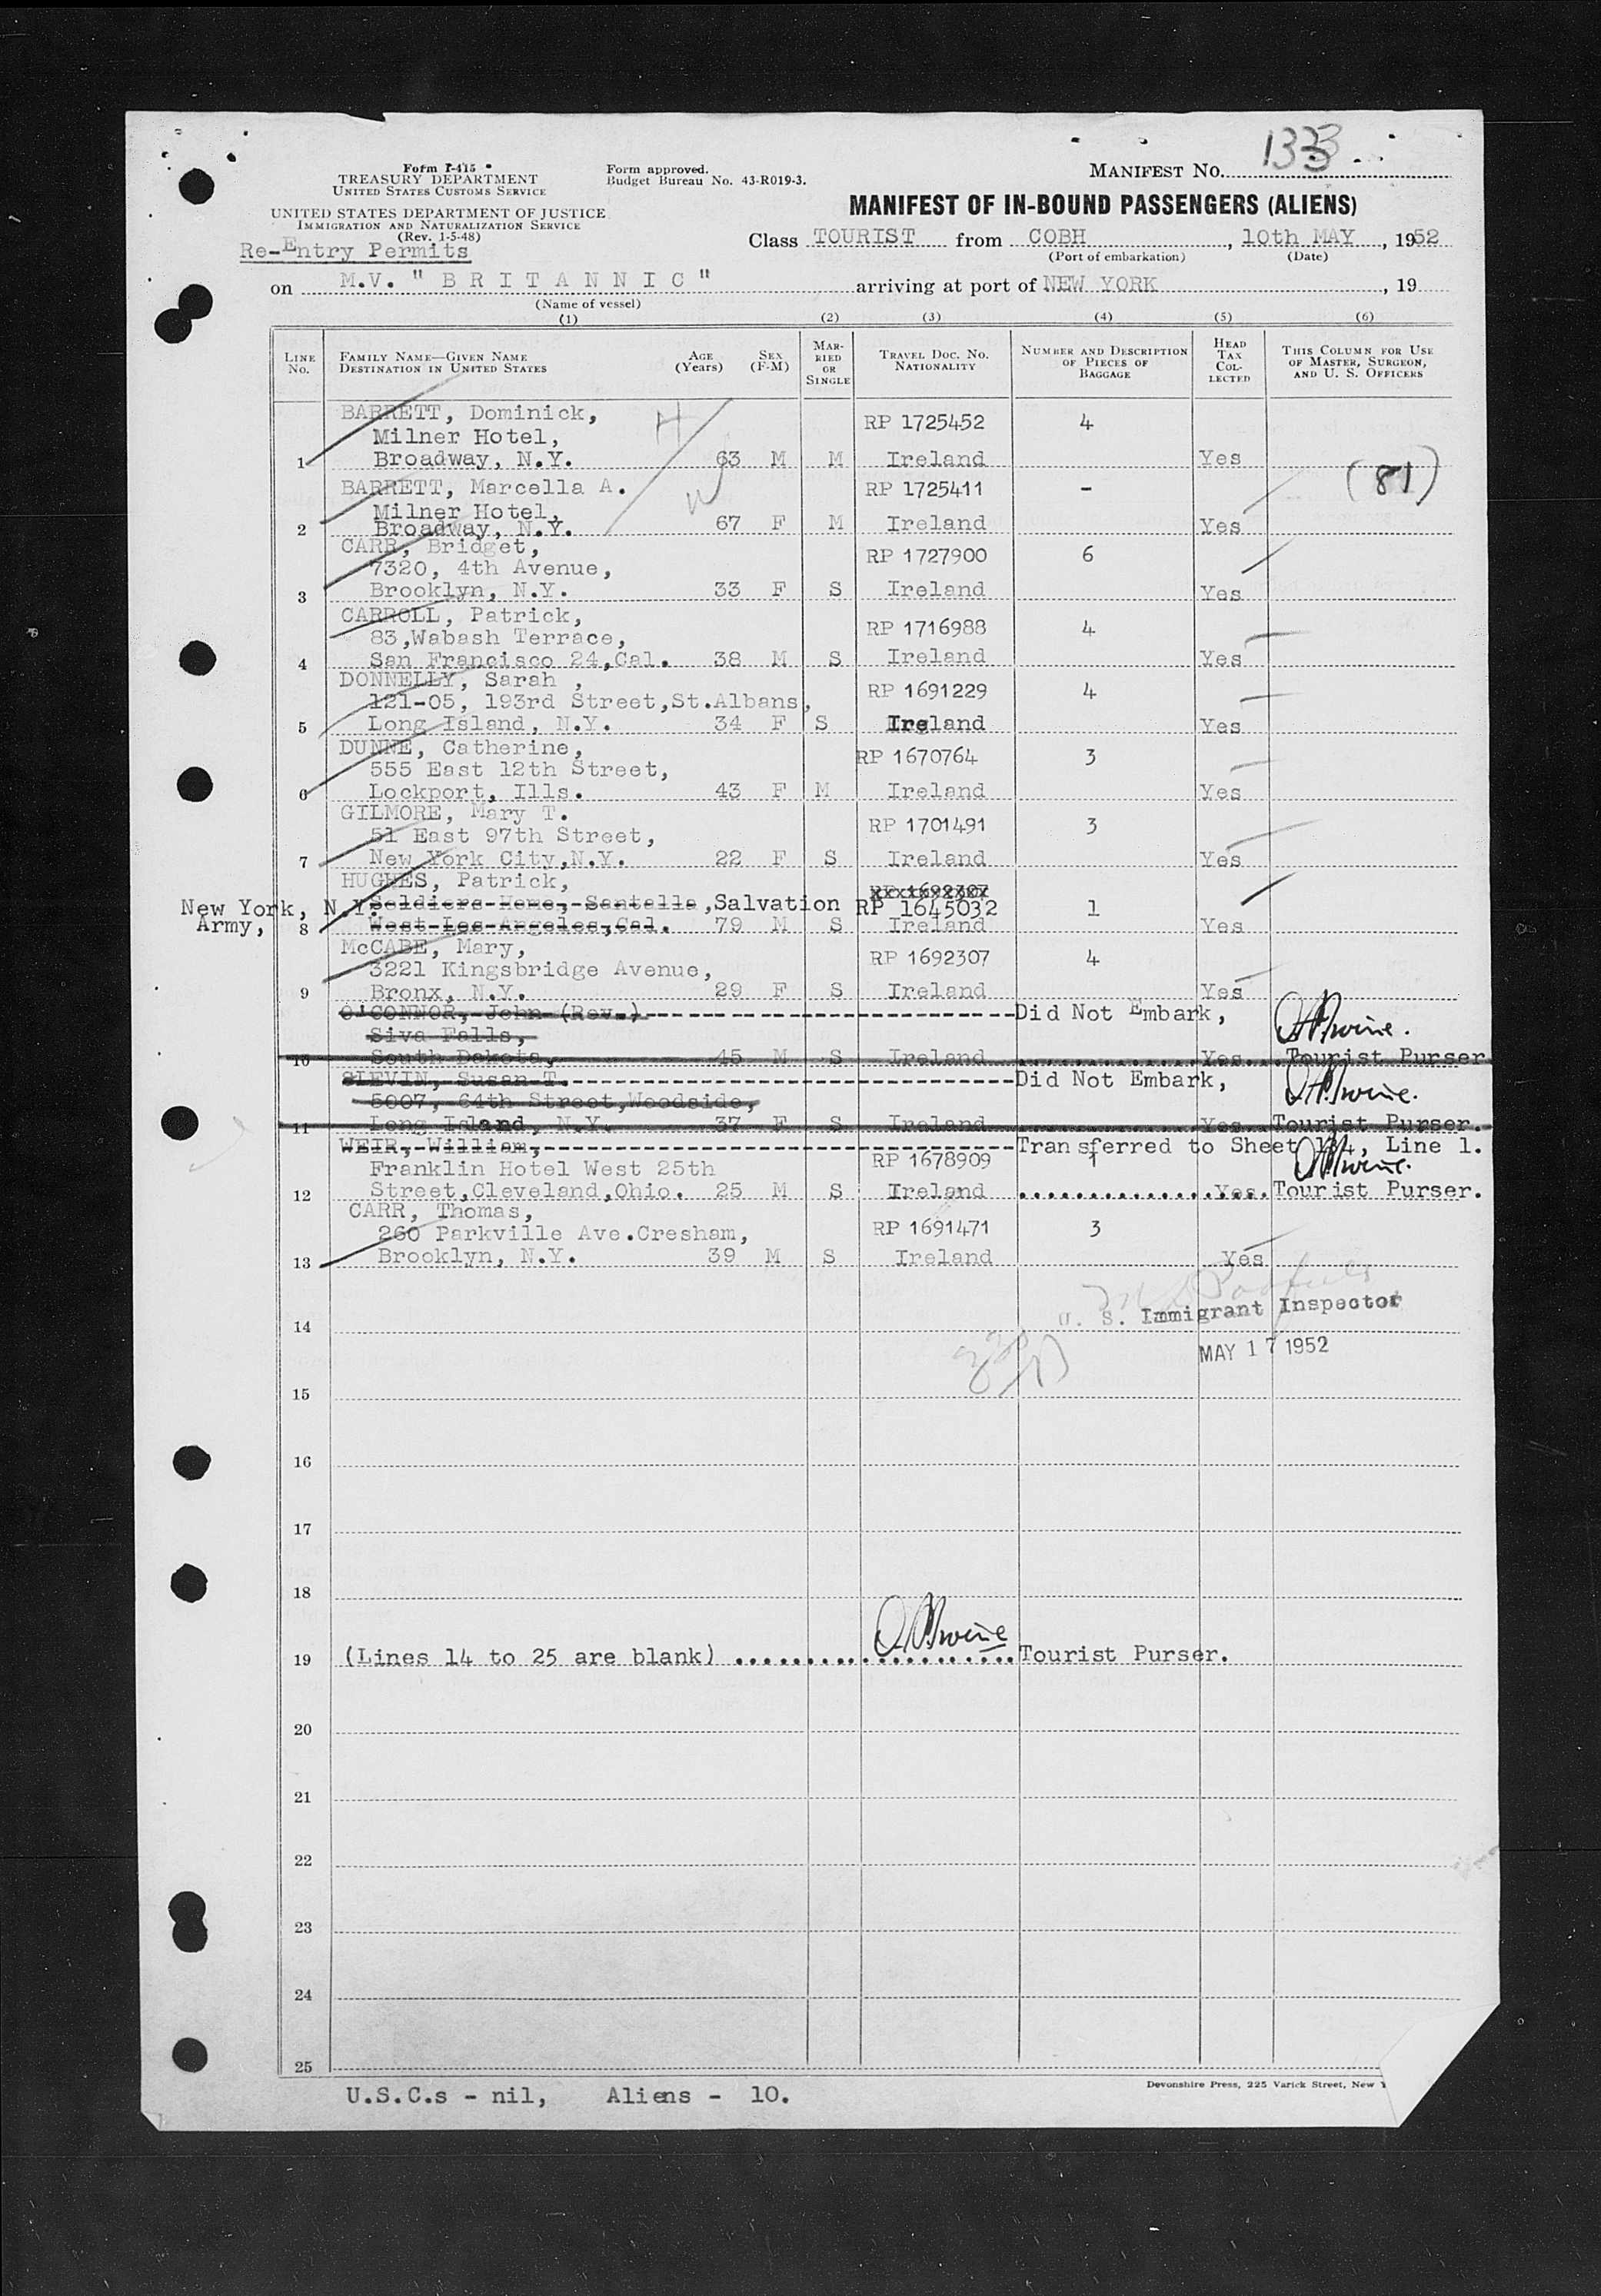 1333
Form I-415
TREASURY DEPARTMENT
UNITED STATES CUSTOMS SERVICE
Form approved.
Budget Bureau No. 43-R019-3.
MANIFEST NO.
UNITED STATES DEPARTMENT OF JUSTICE
IMMIGRATION AND NATURALIZATION SERVICE
(Rev. 1-5-48)
MANIFEST OF IN-BOUND PASSENGERS (ALIENS)
Re-Entry Permits
Class TOURIST from COBH, 10th MAY, 1952
(Port of embarkation) (Date)
on M.V. "BRITANNIC" arriving at port of NEW YORK, 19
(Name of vessel)
(1) (2) (3) (4) (5) (6)
LINE NO. FAMILY NAME—GIVEN NAME DESTINATION IN UNITED STATES AGE (Years) SEX (F-M) MARRIED OR SINGLE TRAVEL DOC. NO. NATIONALITY NUMBER AND DESCRIPTION OF PIECES OF BAGGAGE HEAD TAX COLLECTED THIS COLUMN FOR USE OF MASTER, SURGEON, AND U. S. OFFICERS
BARRETT, Dominick, RP 1725452 4
Milner Hotel,
1 Broadway, N.Y. 63 M M Ireland Yes
(81)
BARRETT, Marcella A. RP 1725411 -
Milner Hotel,
2 Broadway, N.Y. 67 F M Ireland Yes
CARR, Bridget, RP 1727900 6
7320, 4th Avenue,
3 Brooklyn, N.Y. 33 F S Ireland Yes
CARROLL, Patrick, RP 1716988 4
83,Wabash Terrace,
4 San Francisco 24,Cal. 38 M S Ireland Yes
DONNELLY, Sarah , RP 1691229 4
121-05, 193rd Street,St.Albans,
5 Long Island, N.Y. 34 F S Ireland Yes
DUNNE, Catherine, RP 1670764 3
555 East 12th Street,
6 Lockport, Ills. 43 F M Ireland Yes
GILMORE, Mary T. RP 1701491 3
51 East 97th Street,
7 New York City,N.Y. 22 F S Ireland Yes
HUGHES, Patrick, RP 1692307
New York, N.Y. Soldiers Home, Santella ,Salvation RP 1645032 1
Army, 8 West Los Angeles,Cal. 79 M S Ireland Yes
McCABE, Mary, RP 1692307 4
3221 Kingsbridge Avenue,
9 Bronx, N.Y. 29 F S Ireland Yes
O'CONNOR, John (Rev.) Did Not Embark,
Siva Falls,
10 South Dakota, 45 M S Ireland Yes Tourist Purser
SLEVIN, Susan T. Did Not Embark,
5007, 64th Street,Woodside,
11 Long Island, N.Y. 37 F S Ireland Yes Tourist Purser.
WEIR, William, Transferred to Sheet 134, Line 1.
Franklin Hotel West 25th RP 1678909 1
12 Street,Cleveland,Ohio. 25 M S Ireland Yes. Tourist Purser.
CARR, Thomas, RP 1691471 3
260 Parkville Ave.Cresham,
13 Brooklyn, N.Y. 39 M S Ireland Yes
U. S. Immigrant Inspector
14
MAY 17 1952
15
16
17
18
19 (Lines 14 to 25 are blank) Tourist Purser.
20
21
22
23
24
25
Devonshire Press, 225 Varick Street, New
U.S.C.s - nil, Aliens - 10.